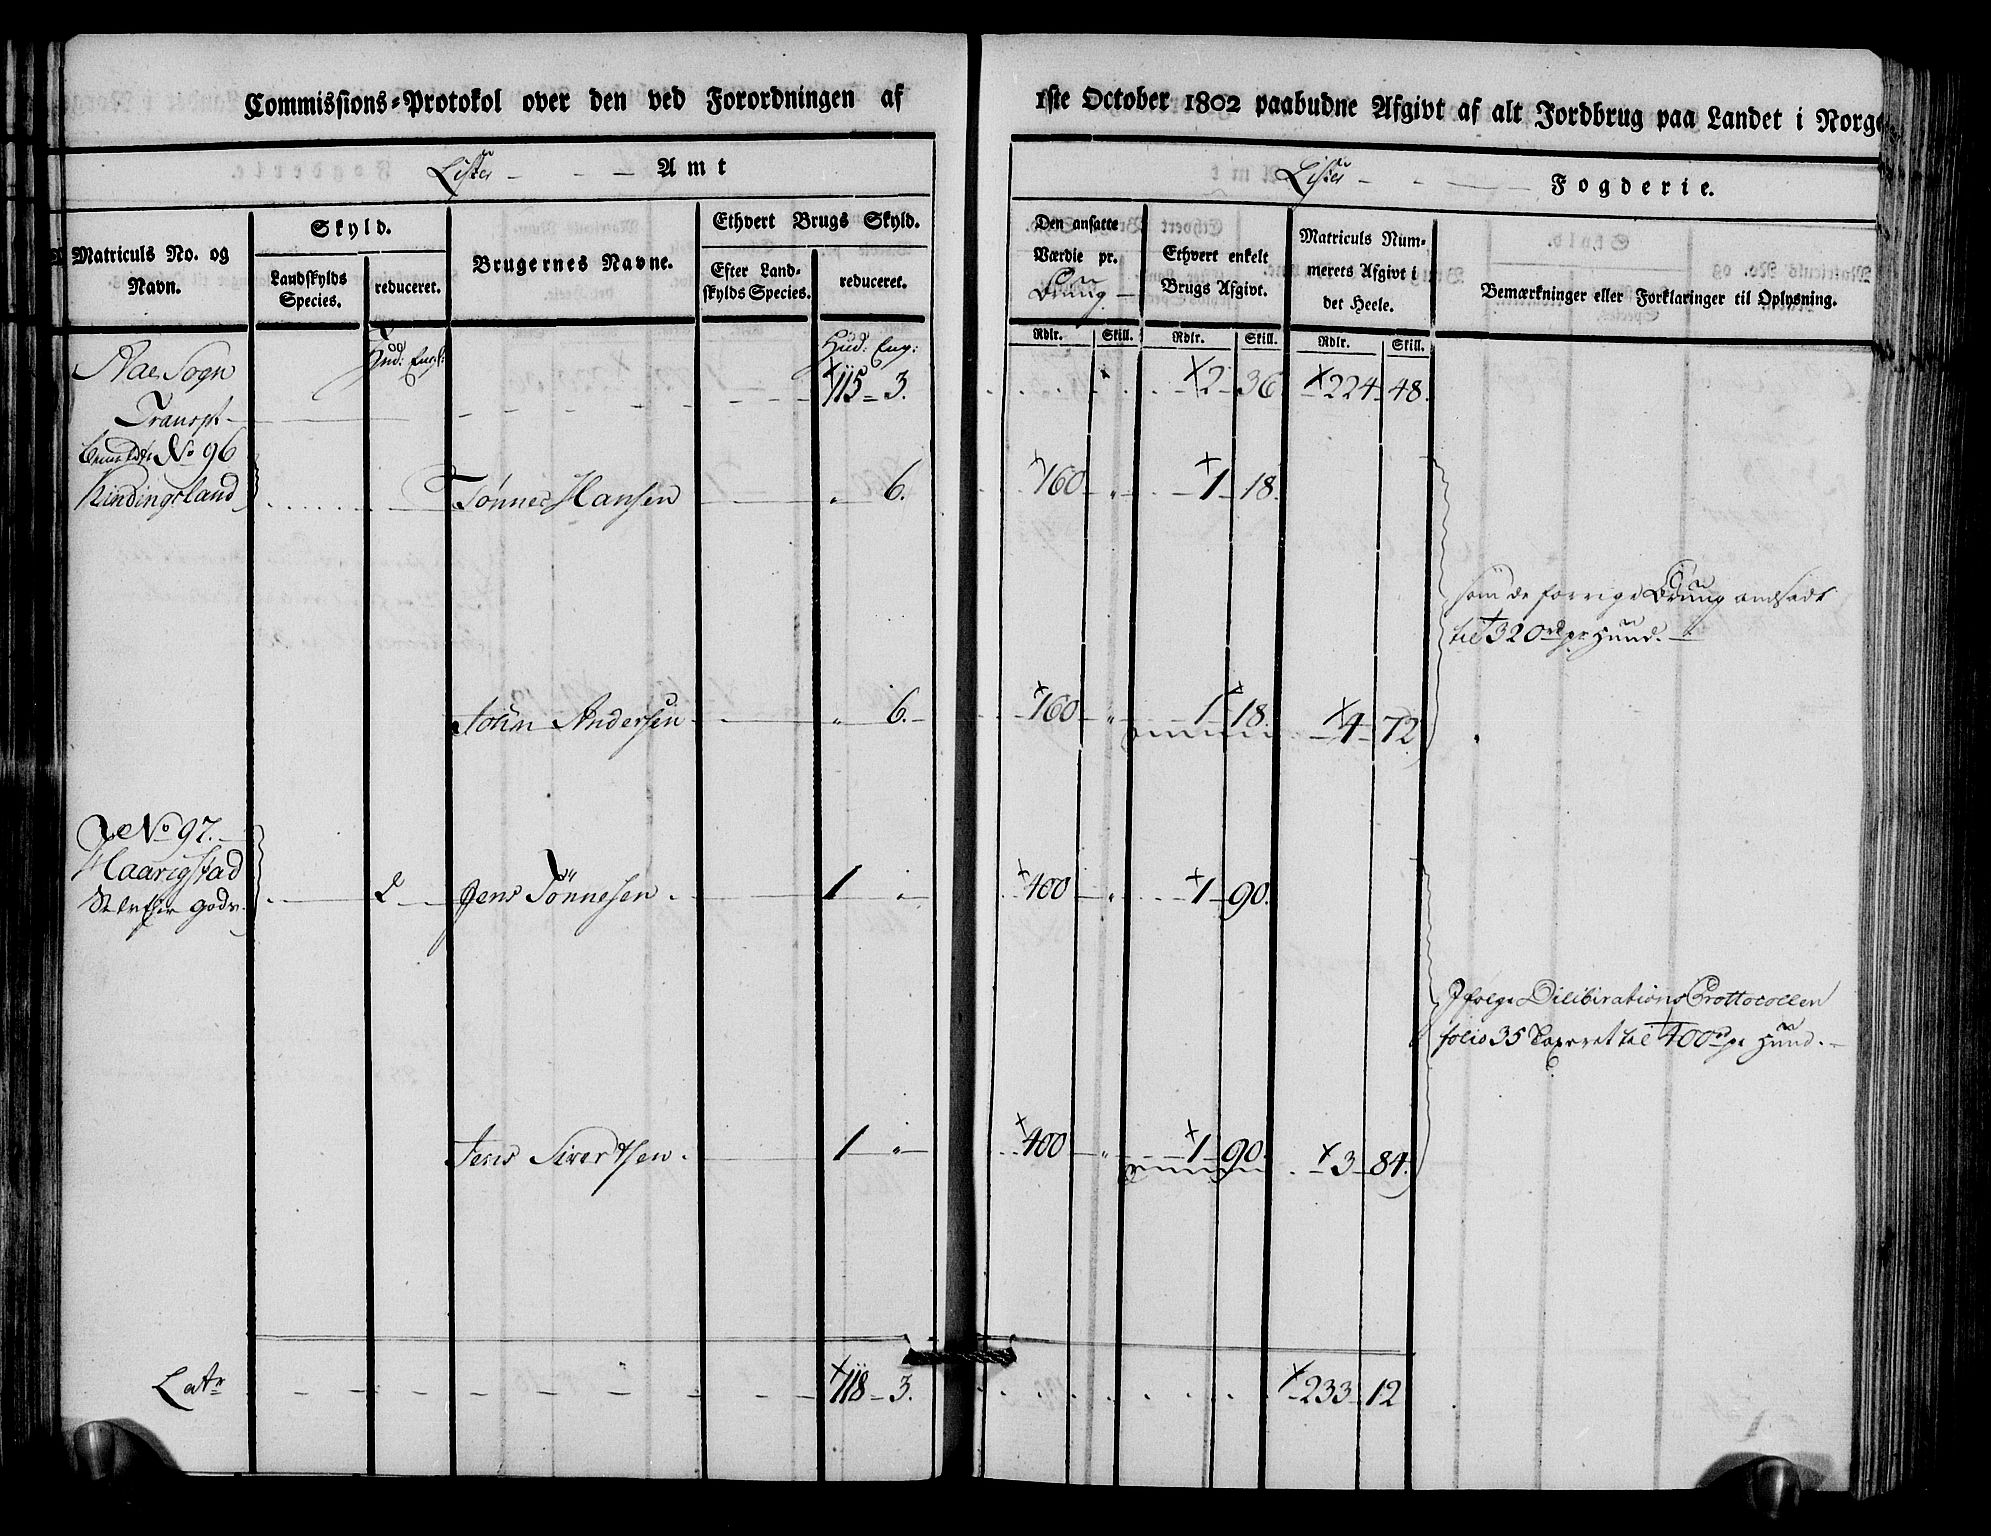 Commissions-Protokol over den ved Forordningen af
1ste October 1802 paabudne Afgivt af alt Jordbrug paa Landet i Norge
Lister Amt
Lister Fogderie.
Matriculs No. og Navn.
Skyld.
Landskylds Species.
reduceret.
Brugernes Navne.
Ethvert Brugs Skyld.
Efter Landskylds Species.
reduceret.
Den ansatte Værdie pr. Brug
Ethvert enkelt Brugs Afgivt.
Matriculs Nummerets Afgivt i det Heele.
Bemærkninger eller Forklaringer til Oplysning.
Rdlr. Skill. Rdlr. Skill. Rdlr. Skill.
Hud: Eng: Hud: Eng:
Naes Sogn
Transpt 115 3. 2 36 224 48.
No 96
Rindingsland Tønnes Hansen 6. 160 1 18.
som de forrige Brug andsadt
til 320 rd pr Huud.
John Andersen 6. 160 1 18. 4 72
No 97.
Haarigstad
2 Jens Tönnesen 1 400 1 90.
Ifølge Dilibirations Prottocollen
folio 35 Taxeret til 400 rd pr Huud.
Jens Sivertsen 1 400 1 90. 3 84.
Latr 118 3. 233 12